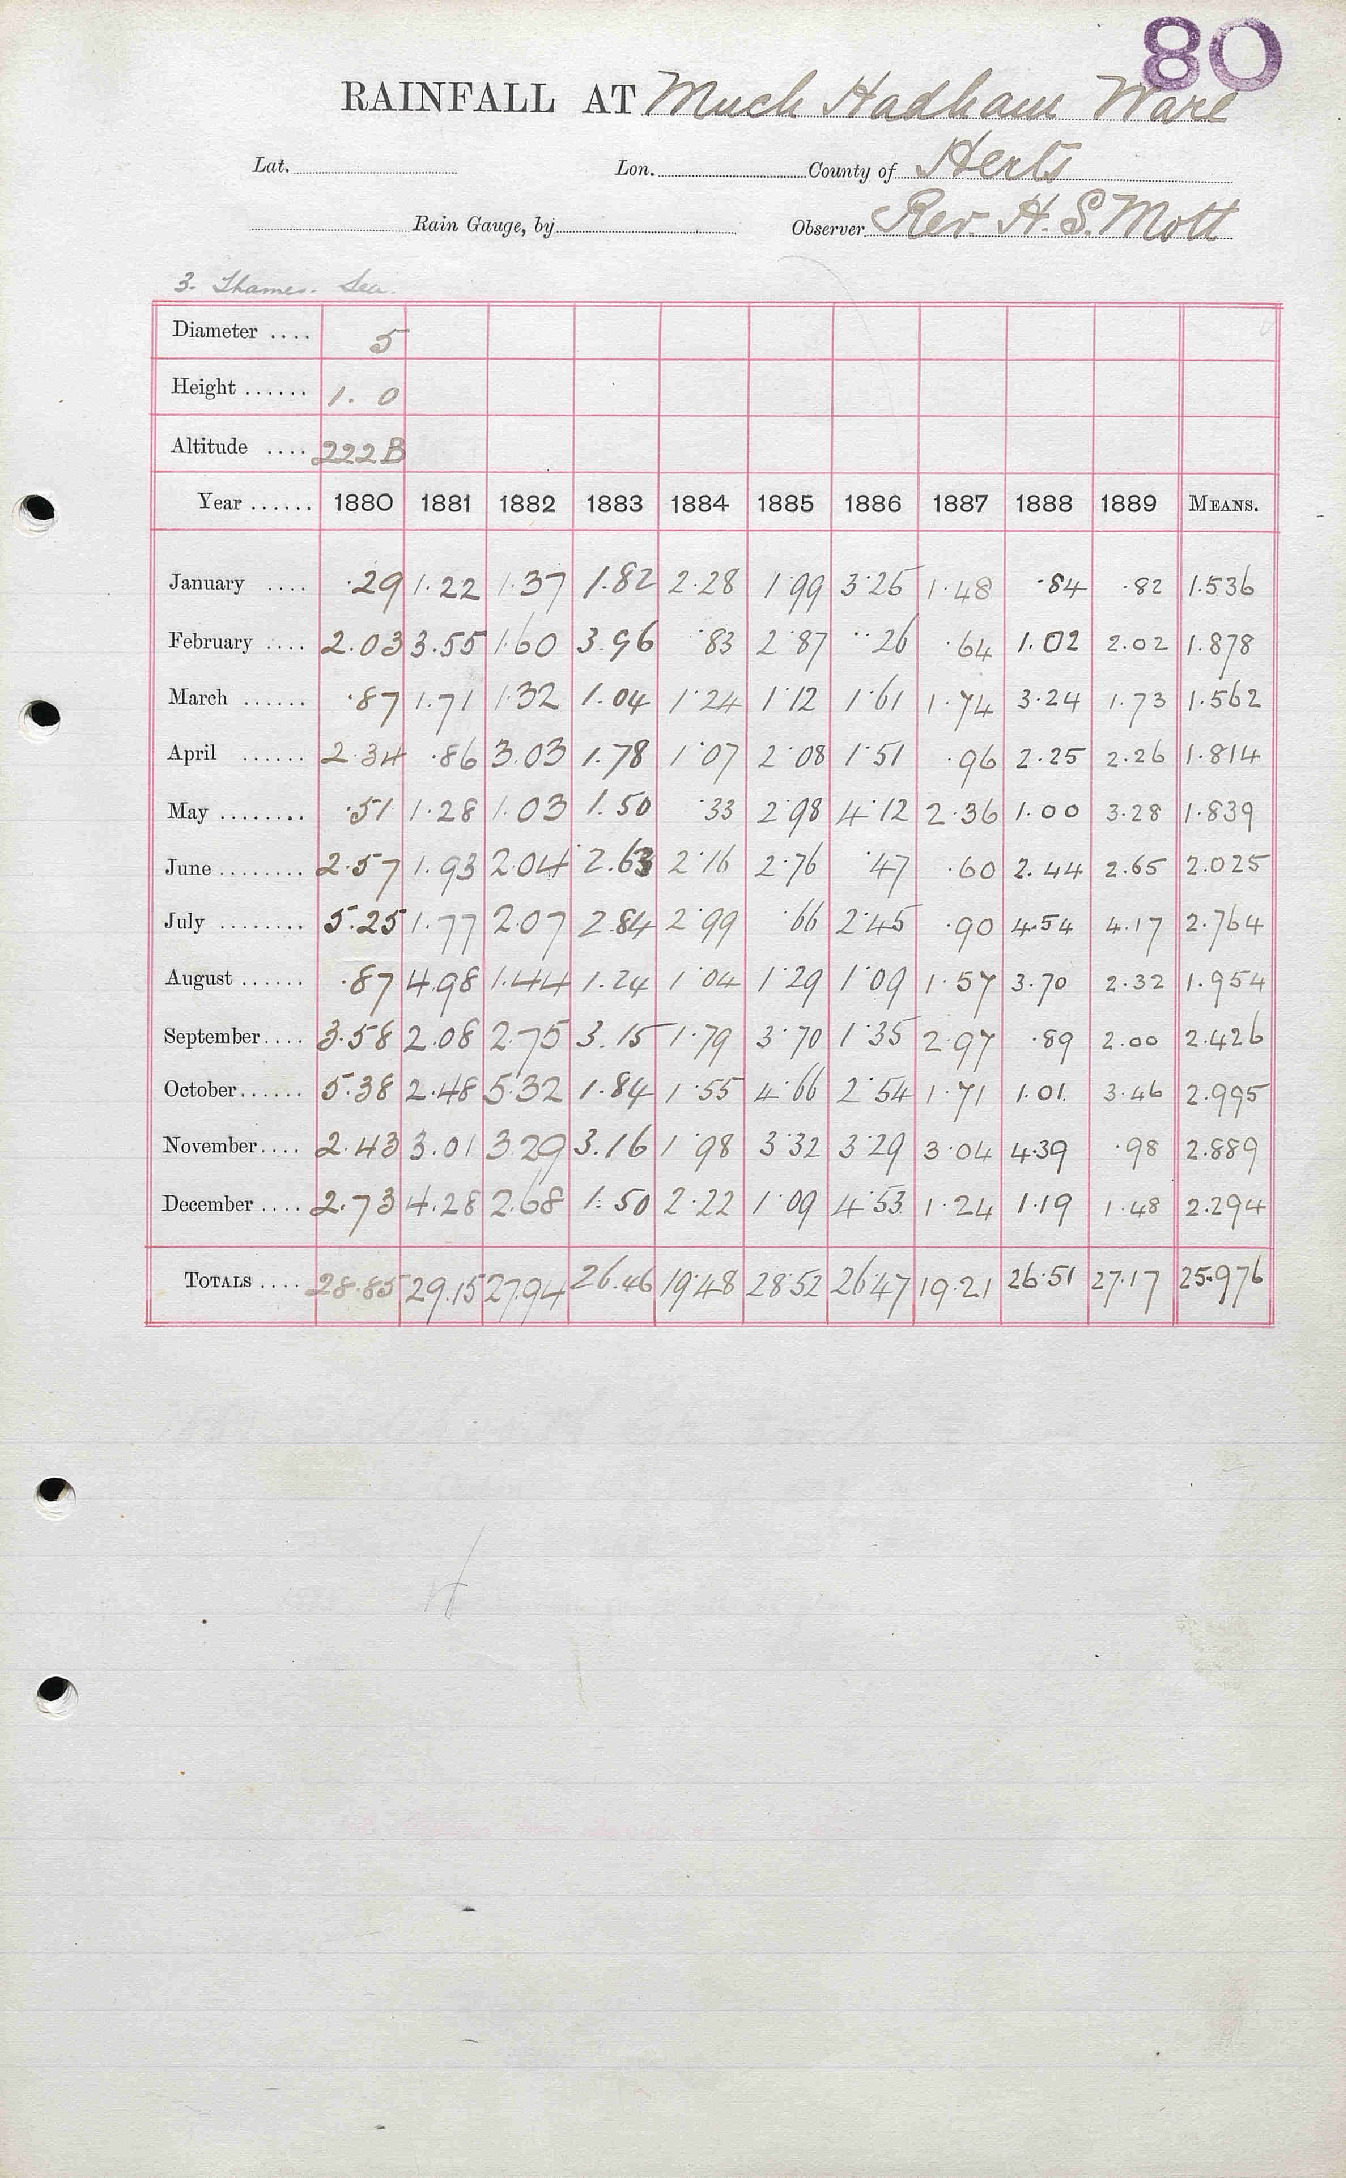 80
RAINFALL AT Much Hadham Ware
Lat. Lon. County of Herts
Rain Gauge, by Observer Rev. H. S. Mott
3. Thames. Sea.
Diameter .... 5
Height ...... 1. 0
Altitude .... 222B
Year ...... 1880 1881 1882 1883 1884 1885 1886 1887 1888 1889 MEANS.
January .... ·29 1.22 1.37 1.82 2·28 1·99 3·25 1·48 ·84 ·82 1.536
February .... 2.03 3.55 1.60 3.96 ·83 2·87 ··26 ·64 1.02 2.02 1.878
March ...... ·87 1.71 1.32 1.04 1·24 1·12 1·61 1·74 3·24 1.73 1.562
April ...... 2.34 ·86 3.03 1.78 1·07 2·08 1·51 ·96 2·25 2·26 1.814
May ........ ·51 1·28 1.03 1.50 ·33 2·98 4·12 2·36 1.00 3·28 1.839
June ........ 2·57 1.93 2.04 2.63 2·16 2·76 ·47 ·60 2.44 2.65 2.025
July ........ 5.25 1.77 2.07 2.84 2·99 ·66 2·45 ·90 4.54 4.17 2.764
August ...... ·87 4.98 1.44 1.24 1·04 1·29 1·09 1·57 3.70 2.32 1.954
September .... 3.58 2.08 2.75 3.15 1·79 3·70 1·35 2·97 ·89 2.00 2.426
October ...... 5.38 2.48 5.32 1.84 1·55 4·66 2·54 1·71 1.01 3.46 2.995
November .... 2.43 3.01 3.29 3.16 1·98 3·32 3·29 3·04 4.39 ·98 2.889
December .... 2.73 4.28 2.68 1.50 2·22 1·09 4·53 1·24 1·19 1·48 2.294
TOTALS .... 28.85 29.15 27.94 26.46 19·48 28·52 26·47 19·21 26·51 27·17 25.976